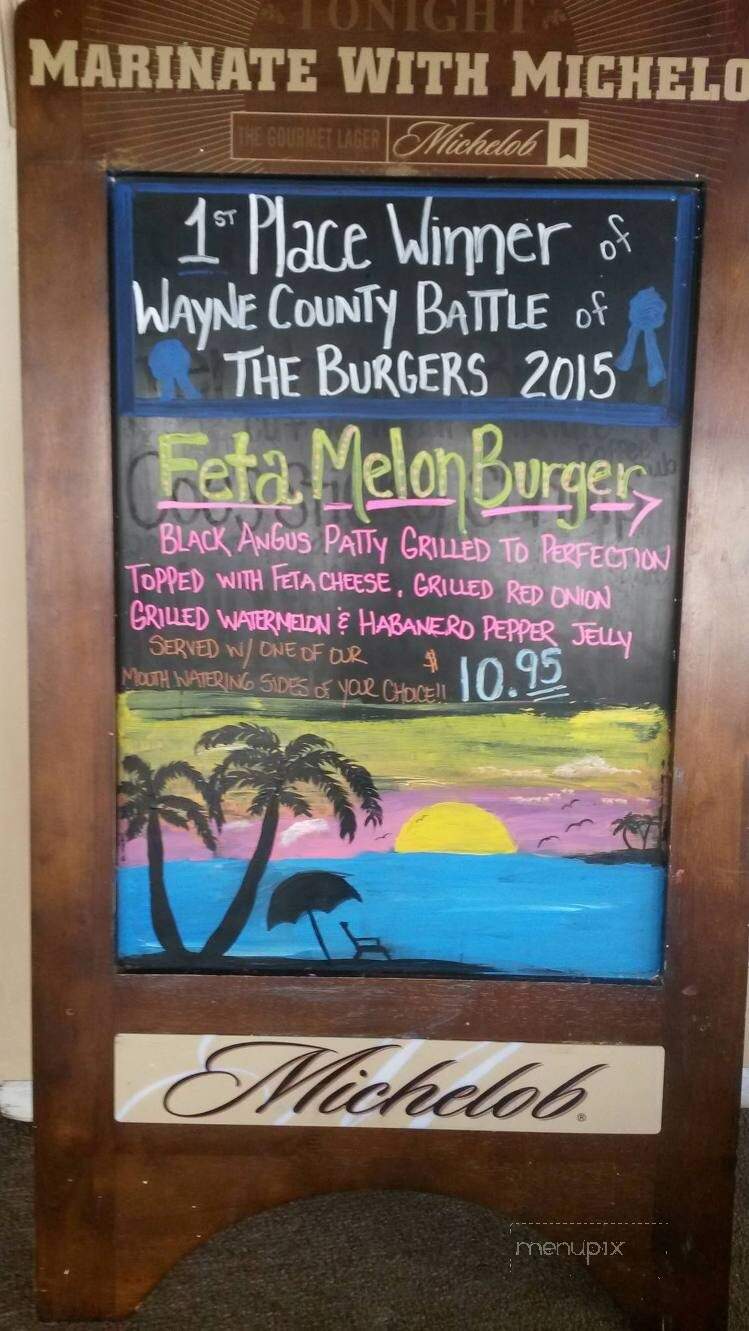 TONIGHT
MARINATE WITH MICHELO
THE GOURMET LAGER Michelob
1ST Place Winner of
WAYNE COUNTY BATTLE of
THE BURGERS 2015
Feta Melon Burger
BLACK ANGUS PATTY GRILLED TO PERFECTION
TOPPED WITH FETA CHEESE, GRILLED RED ONION
GRILLED WATERMELON & HABANERO PEPPER JELLY
SERVED W/ ONE OF OUR
MOUTH WATERING SIDES of YOUR CHOICE!! $10.95
Michelob®
menupix